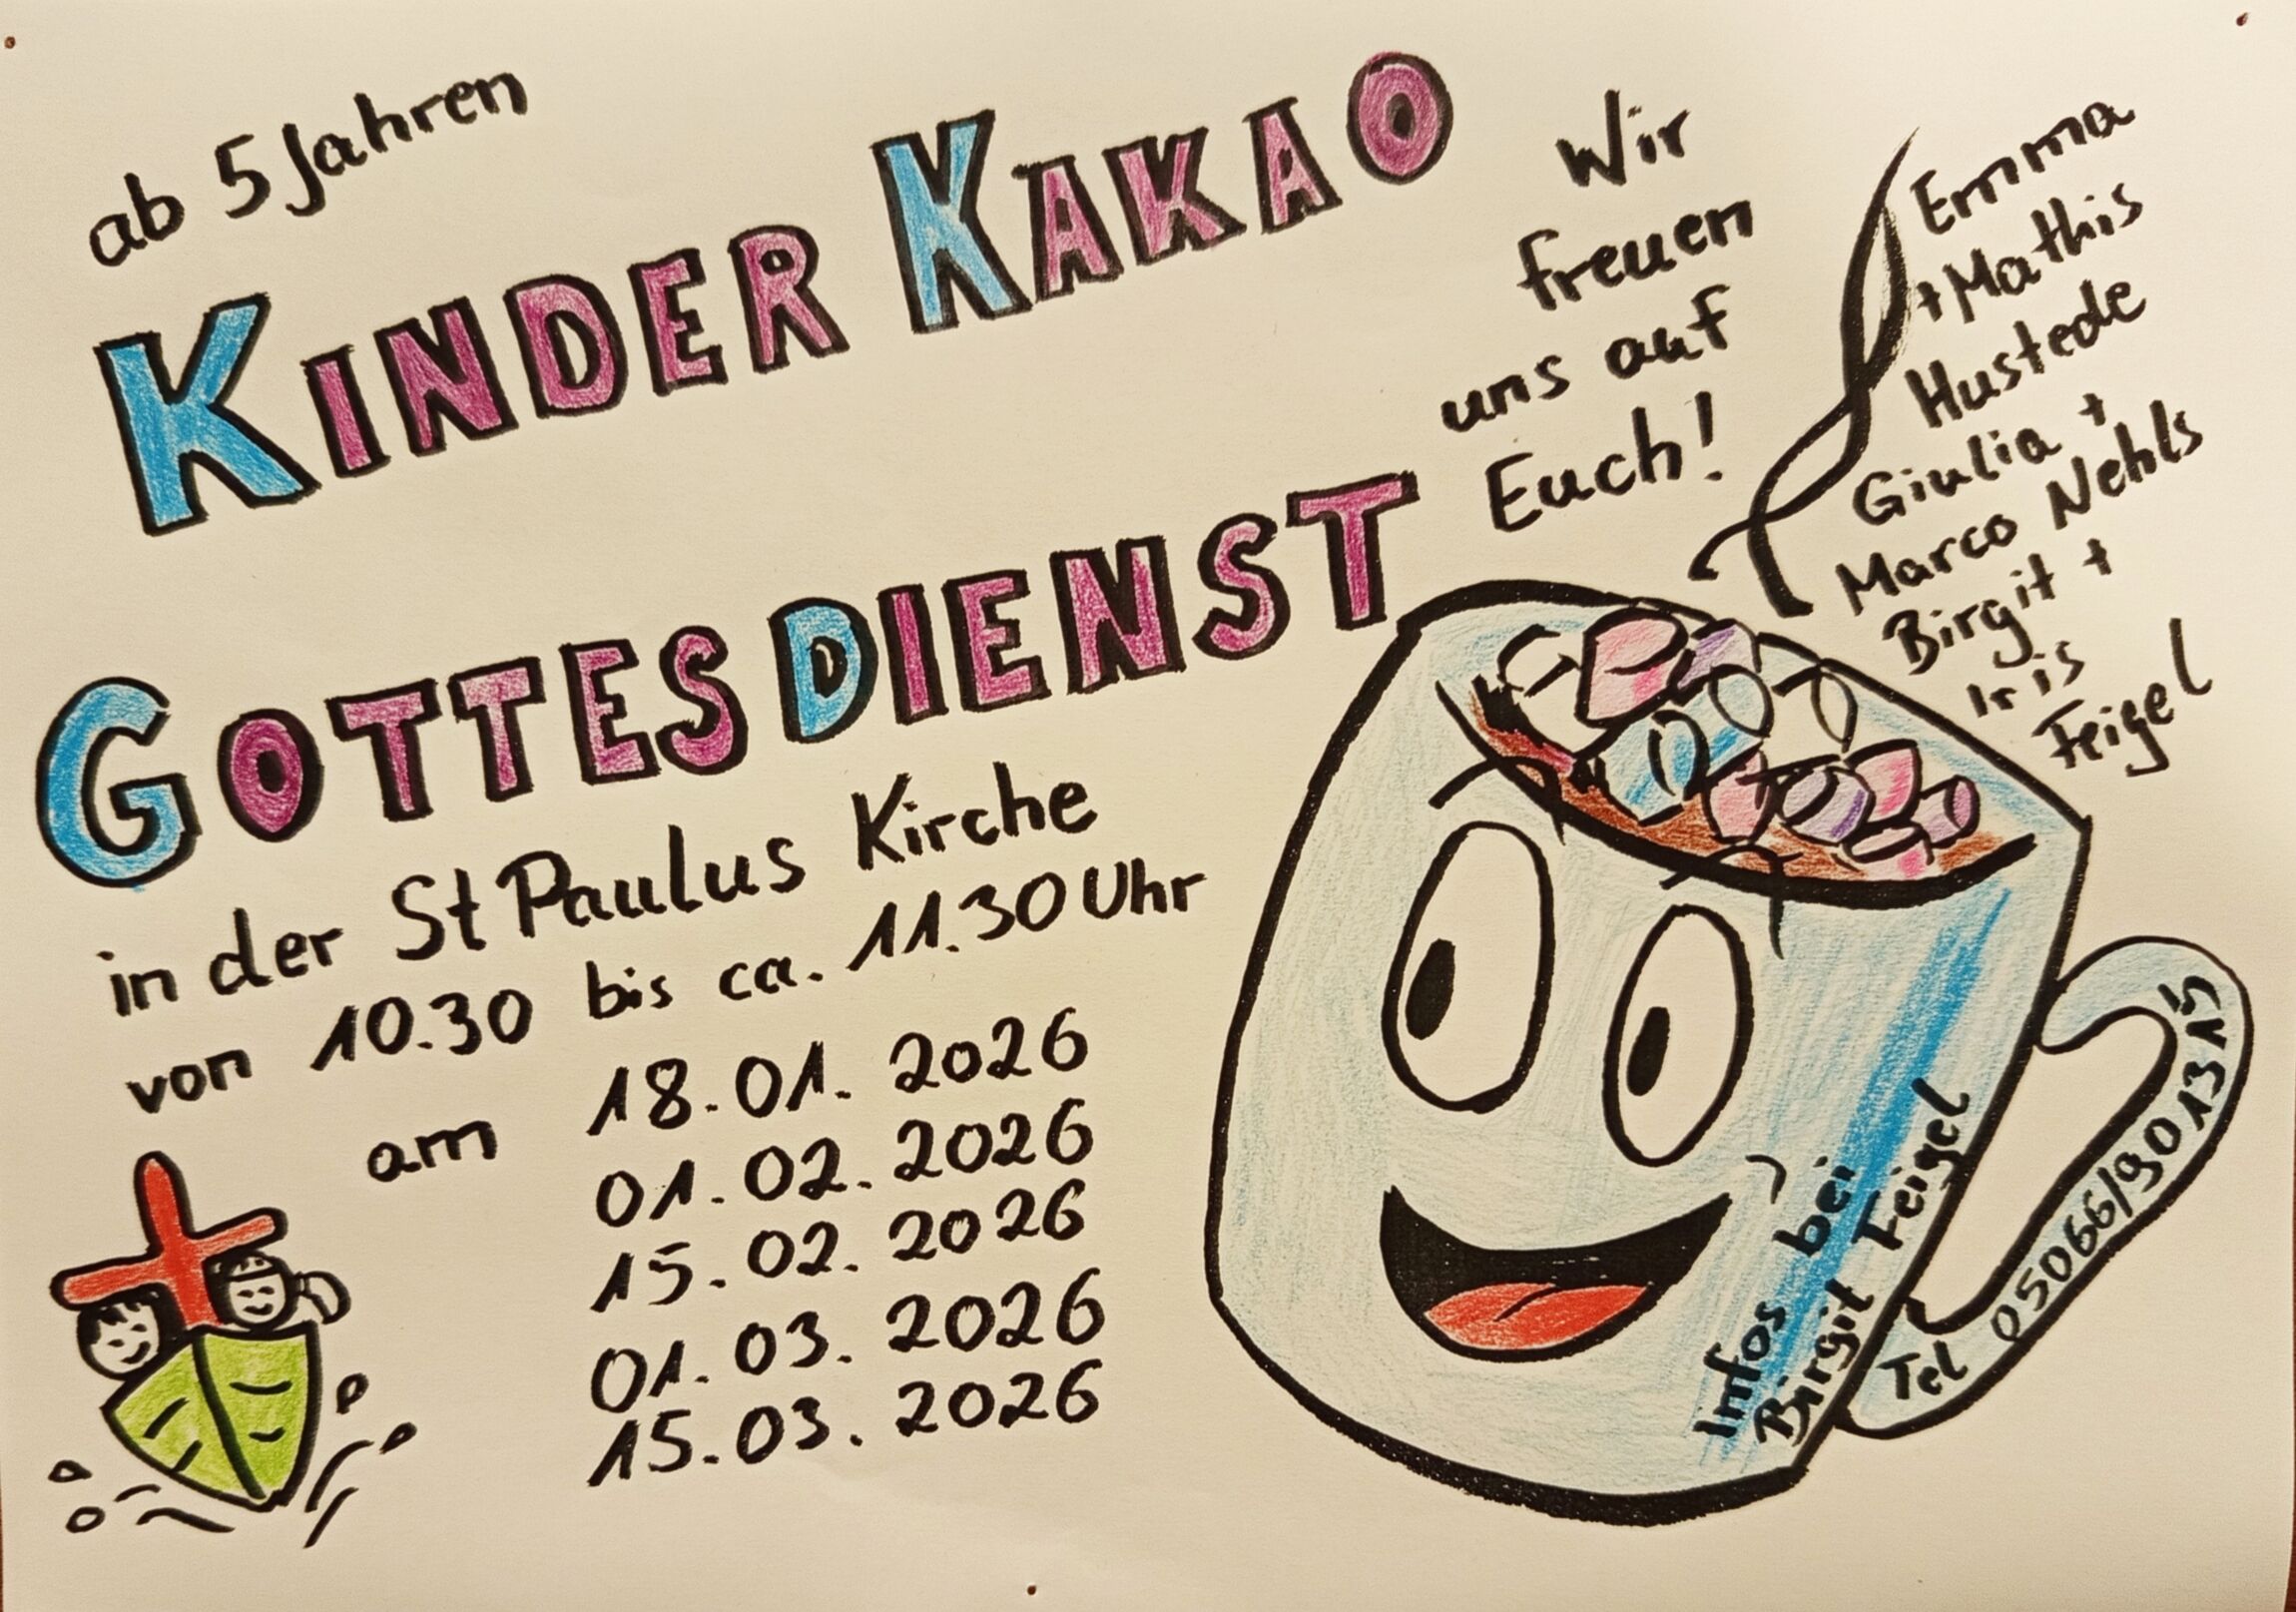 ab 5 Jahren
KINDER KAKAO
GOTTESDIENST
in der St Paulus Kirche
von 10.30 bis ca. 11.30 Uhr
am 18.01.2026
01.02.2026
15.02.2026
01.03.2026
15.03.2026
Wir
freuen
uns auf
Euch!
Emma
+ Mathis
Hustede
Giulia +
Marco Nehls
Birgit +
Iris
Feigel
Infos bei
Birgit Feigel
Tel 05066/901315